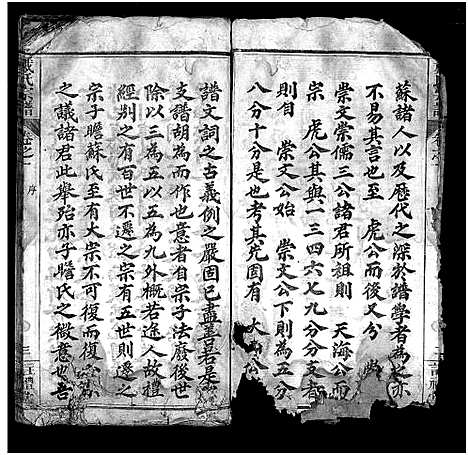 蘇諸人以及歷代之深於譜學者為之亦
不易其言也至　虎公而後又分
崇文崇儒三公諸君所祖則　天海公而
宗　虎公其與一三四六七九分分支者
則自　崇文公始　崇文公下則為五分
八分十分是也考其先固有　大
譜文詞之古義例之嚴固已盡善若是
支譜胡為而作也意者自宗子法廢後世
除以三為五以五為九外概若途人故禮
經別之有百世不遷之宗有五世則遷之
宗子瞻蘇氏至有大宗不可復而復
之議諸君此舉殆亦子瞻氏之微意也吾
氏
譜
卷之
序
三